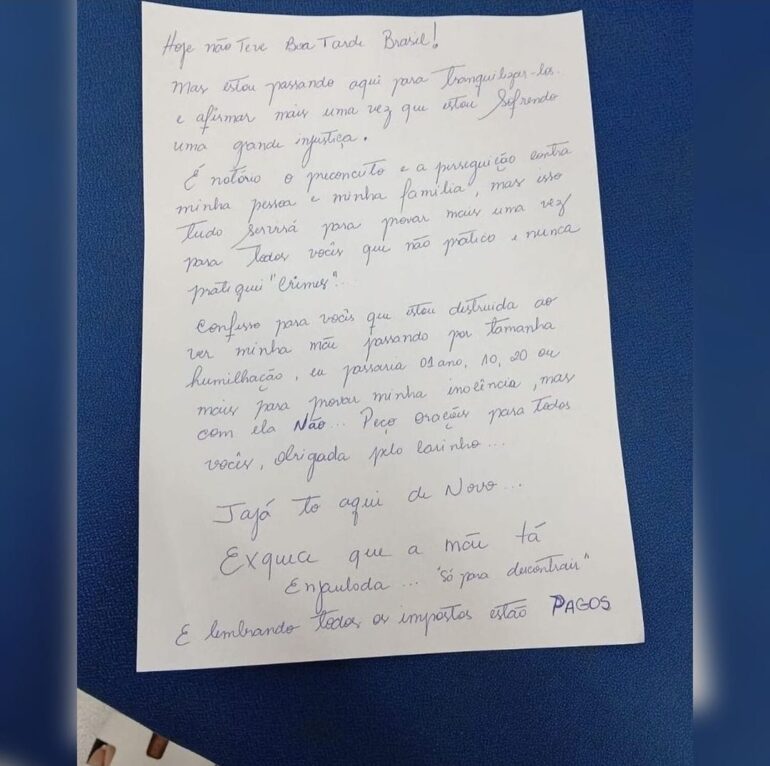 Hoje não Teve Boa Tarde Brasil!
Mas estou passando aqui para Tranquilizar-los
e afirmar mais uma vez que estou Sofrendo
uma grande injustiça.
É notório o preconceito e a perseguição contra
minha pessoa e minha família, mas isso
tudo servirá para provar mais uma vez
para todos vocês que não pratico e nunca
pratiquei "Crimes"...
Confesso para vocês que estou distruida ao
ver minha mãe passando por tamanha
humilhação, eu passaria 01 ano, 10, 20 ou
mais para provar minha inocência, mas
com ela Não... Peço orações para todos
vocês, obrigada pelo carinho...
Jajá to aqui de Novo...
Exquece que a mãe tá
Enjaulada... "Só para descontrair"
E lembrando todos os impostos estão PAGOS